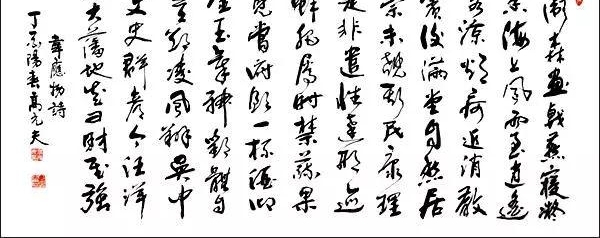 衛森畫戟燕寢凝
香海上風雨至逍遙
閣涼煩疴近消散
賓復滿堂自慙居
崇未覩斯民康理
是非遣性達形迹
鮮肥屬時禁蔬果
見嘗俯飲一杯酒仰
金玉章神歡體自
意欲凌風翔吳中
文史群彥今汪洋
大藩地豈曰財賦強
韋應物詩
丁酉陽春高元夫